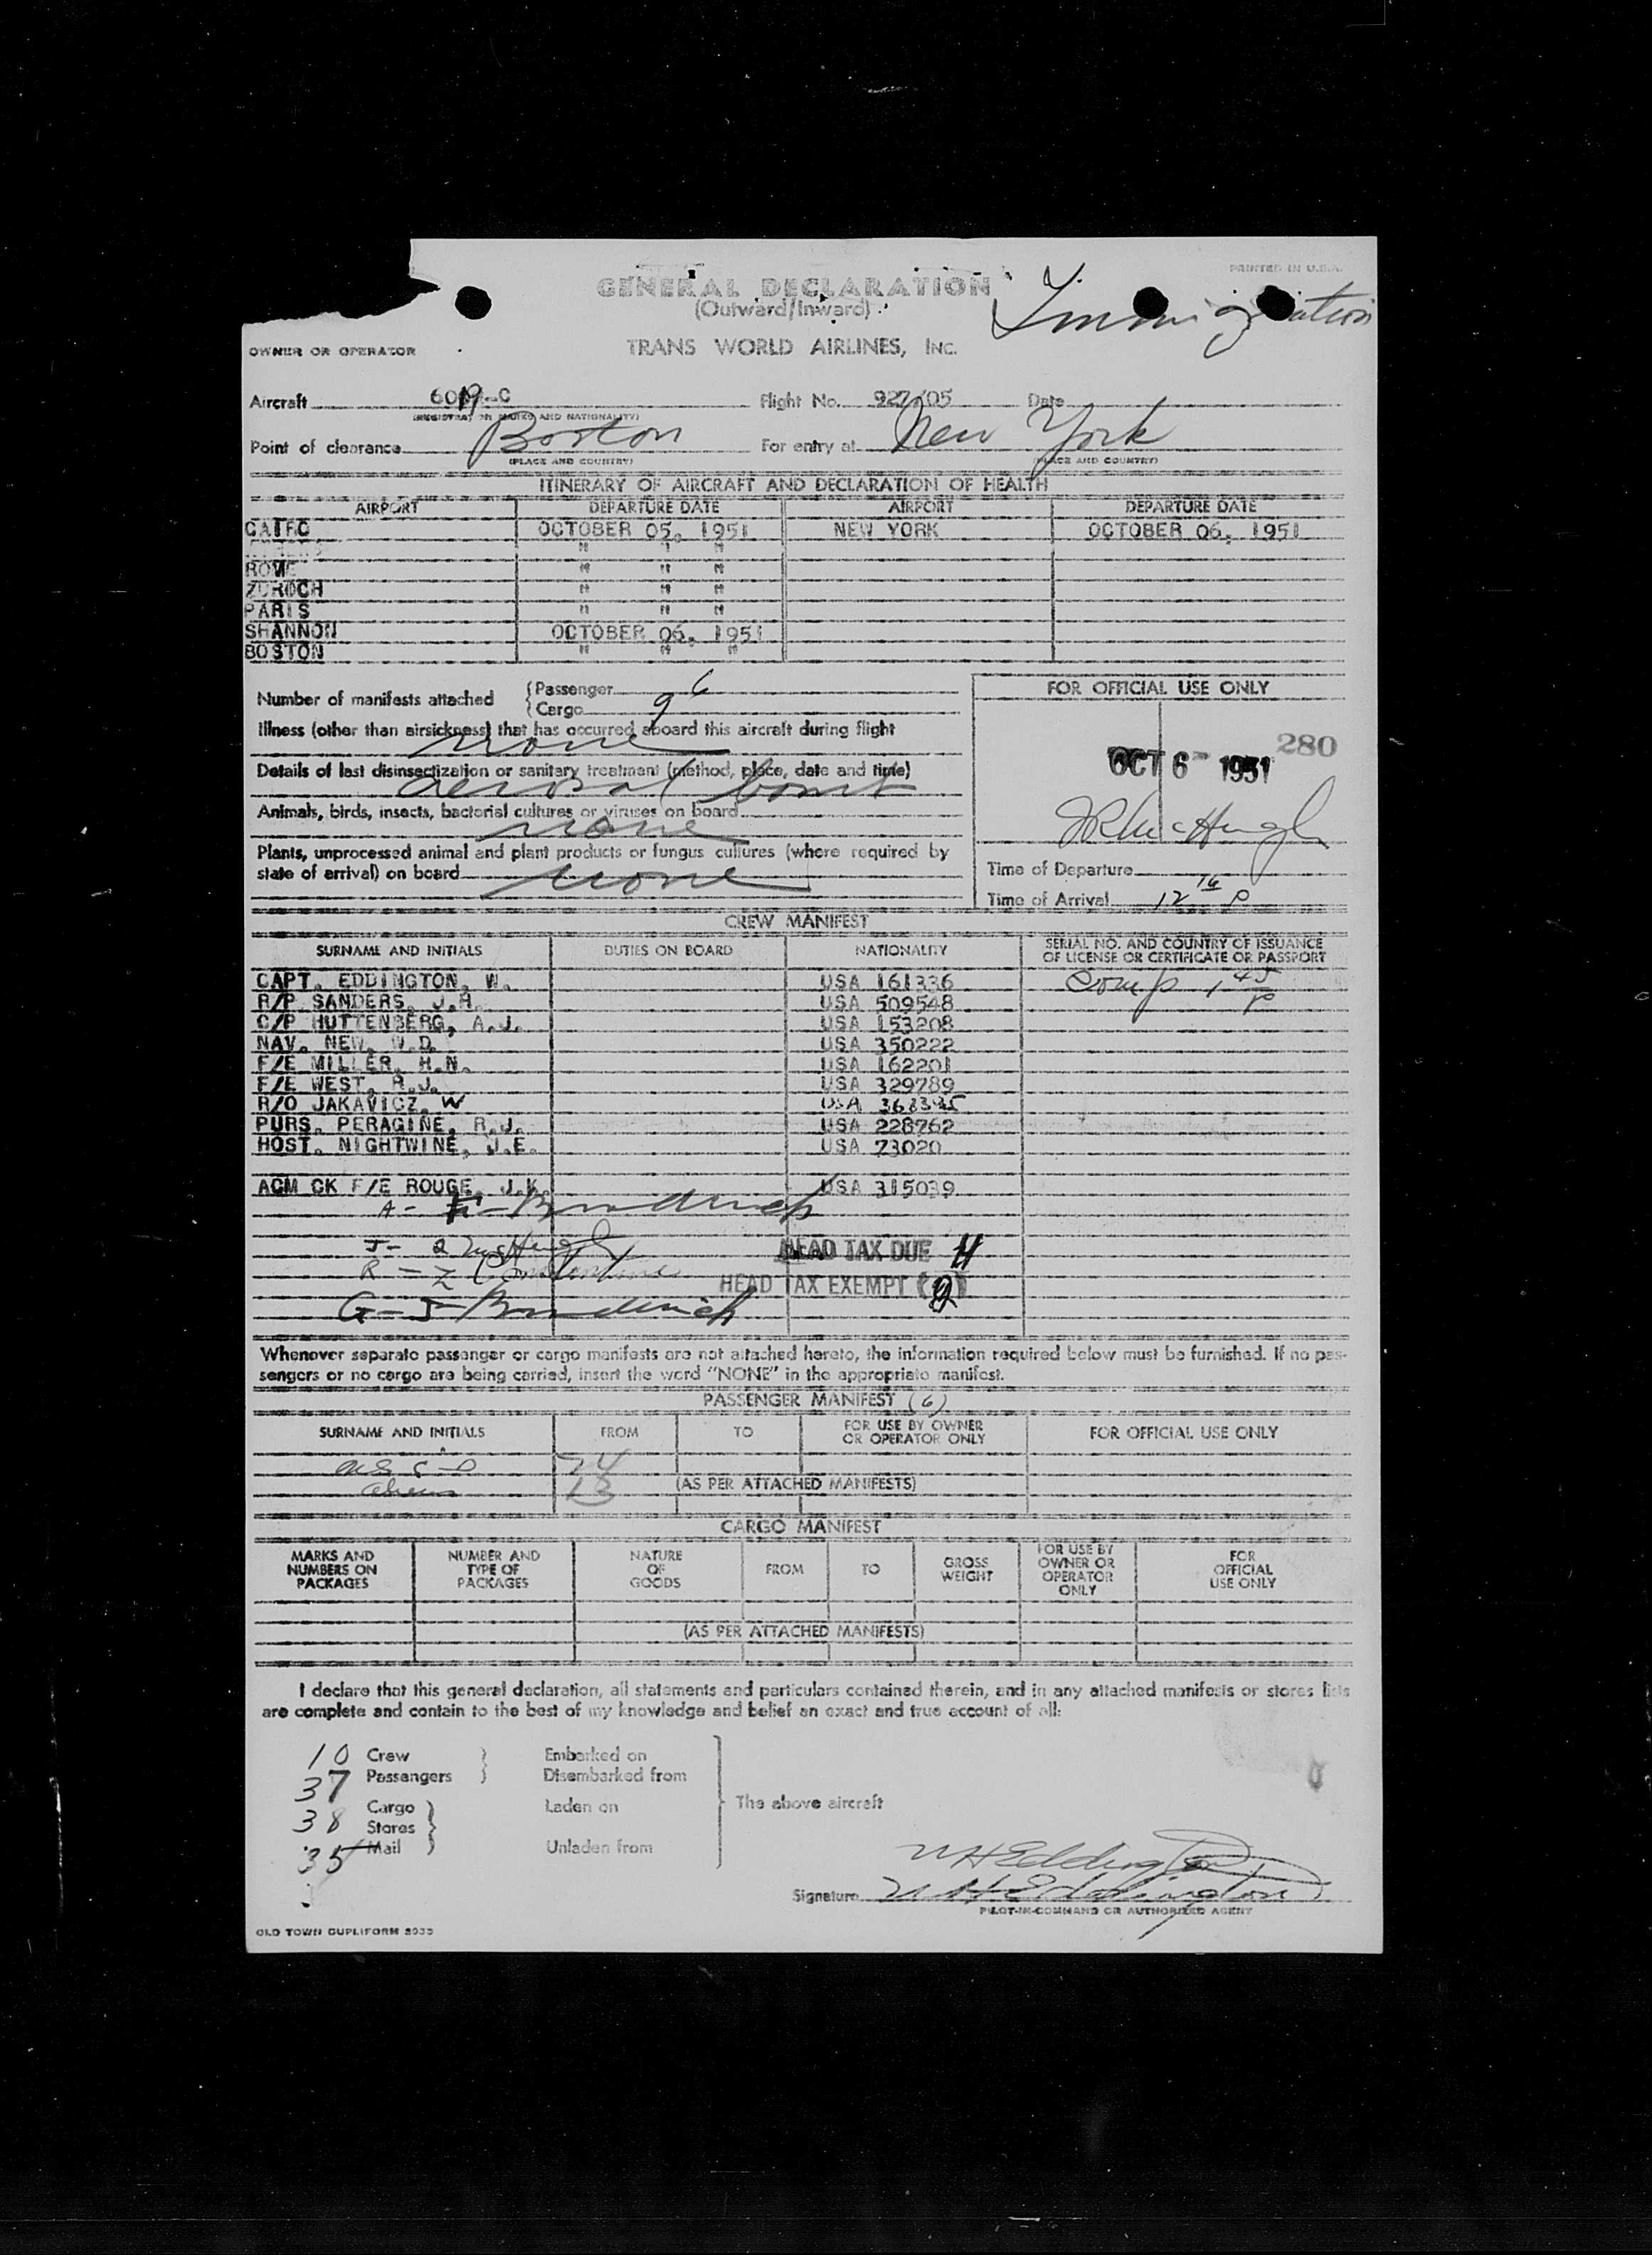 PRINTED IN U.S.A.
GENERAL DECLARATION
(Outward/Inward)
Immigration
OWNER OR OPERATOR
TRANS WORLD AIRLINES, INC.
Aircraft 6019-C Flight No. 927/05 Date
(REGISTRATION MARKS AND NATIONALITY)
Point of clearance Boston For entry at New York
(PLACE AND COUNTRY) (PLACE AND COUNTRY)
ITINERARY OF AIRCRAFT AND DECLARATION OF HEALTH
AIRPORT DEPARTURE DATE AIRPORT DEPARTURE DATE
CAIRO OCTOBER 05, 1951 NEW YORK OCTOBER 06, 1951
" " "
ROME " " "
ZUROCH " " "
PARIS " " "
SHANNON OCTOBER 06, 1951
BOSTON " " "
Number of manifests attached
Passenger 6
Cargo 9
FOR OFFICIAL USE ONLY
Illness (other than airsickness) that has occurred aboard this aircraft during flight
none
280
OCT 6 - 1951
Details of last disinsectization or sanitary treatment (method, place, date and time)
aerosol bomb
Animals, birds, insects, bacterial cultures or viruses on board
none
JR McHugh
Plants, unprocessed animal and plant products or fungus cultures (where required by
state of arrival) on board none
Time of Departure
Time of Arrival 12 16 P
CREW MANIFEST
SURNAME AND INITIALS DUTIES ON BOARD NATIONALITY SERIAL NO. AND COUNTRY OF ISSUANCE
OF LICENSE OR CERTIFICATE OR PASSPORT
CAPT. EDDINGTON, W. USA 161336 Comp 1 45 P
R/P SANDERS, J.H. USA 509548
C/P HUTTENBERG, A.J. USA 153208
NAV. NEW, W.D. USA 350222
F/E MILLER, H.N. USA 162201
F/E WEST, R.J. USA 329789
R/O JAKAVICZ, W USA
PURS. PERAGINE, R.J. USA 228762
HOST. NIGHTWINE, J.E. USA 73020
ACM CK F/E ROUGE, J.K. USA 315039
A-
J- McHugh
HEAD TAX DUE 4
R - Z Constantine
HEAD TAX EXEMPT
G - J -
Whenever separate passenger or cargo manifests are not attached hereto, the information required below must be furnished. If no pas-
sengers or no cargo are being carried, insert the word "NONE" in the appropriate manifest.
PASSENGER MANIFEST (6)
SURNAME AND INITIALS FROM TO FOR USE BY OWNER
OR OPERATOR ONLY FOR OFFICIAL USE ONLY
24
aliens 13 (AS PER ATTACHED MANIFESTS)
CARGO MANIFEST
MARKS AND
NUMBERS ON
PACKAGES
NUMBER AND
TYPE OF
PACKAGES
NATURE
OF
GOODS
FROM
TO
GROSS
WEIGHT
FOR USE BY
OWNER OR
OPERATOR
ONLY
FOR
OFFICIAL
USE ONLY
(AS PER ATTACHED MANIFESTS)
I declare that this general declaration, all statements and particulars contained therein, and in any attached manifests or stores lists
are complete and contain to the best of my knowledge and belief an exact and true account of all:
10 Crew Embarked on
37 Passengers Disembarked from
38 Cargo Laden on The above aircraft
Stores
35 Mail Unladen from
W H Eddington
Signature W H Eddington
PILOT-IN-COMMAND OR AUTHORIZED AGENT
OLD TOWN DUPLIFORM